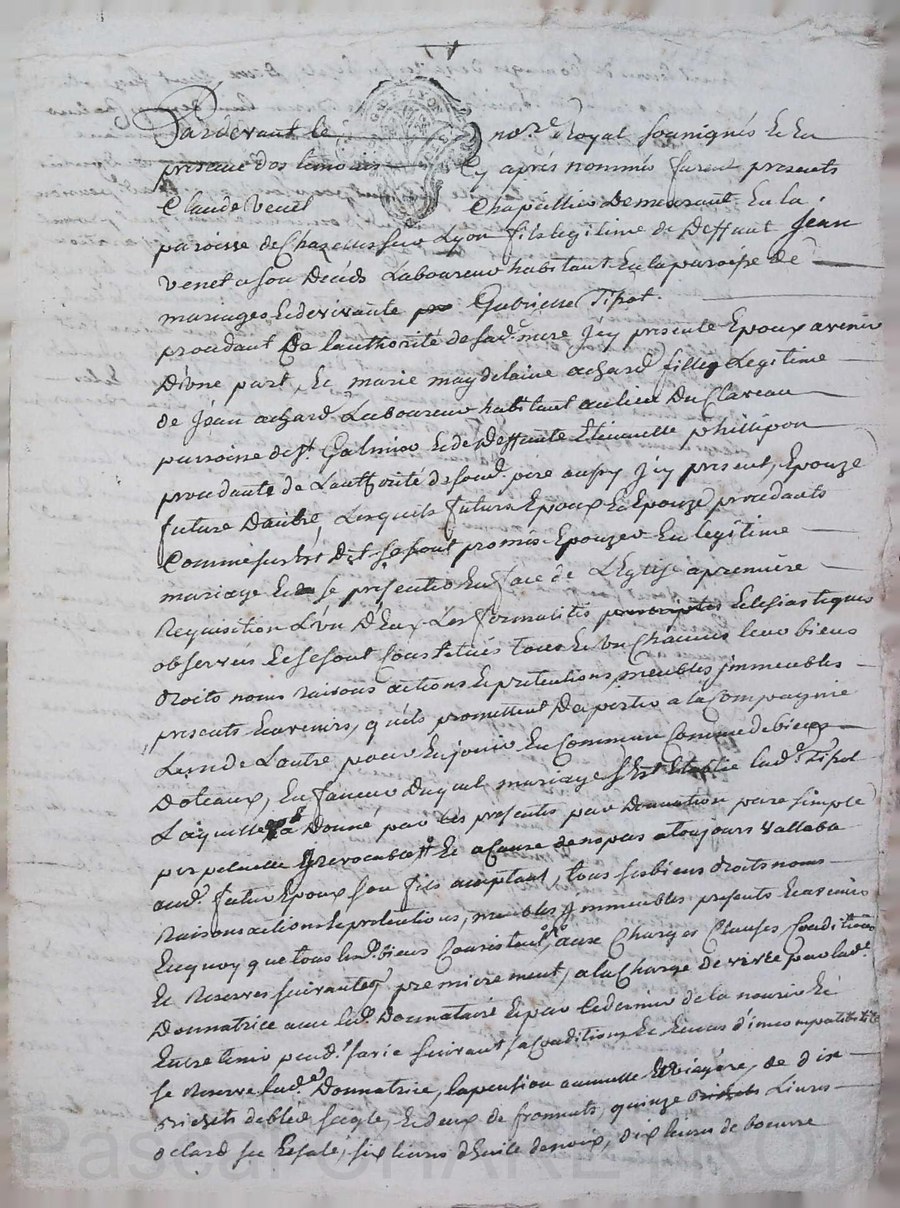 Pardevant le no.re Royal sousignés Et En
presence des temoins Cy apres nommés furent presents
Claude Venet Chapellier Demeurant En la
paroisse de Chazelles sur Lyon fils legitime de Deffunt Jean
Venet a son Decés Laboureur habitant En la paroisse De
mariages Et de vivante Gabrielle Tisot
procedant De lauthorité de sad. mere Icy presente Epoux avenir
D'une part, Et marie magdelaine achard fille Legitime
de Jean achard Laboureur habitant au lieu Du Claveau
parroisse de St. Galmier Et de Deffunte Etiennette phillipon
procedante de Lauthorité de sond. pere aussy Icy present, Epouze
future Dautre, Lesquels futurs Epoux Et Epouze procedants
Comme sus Est Dit se sont promis Epouzer En legitime
mariage Et se presenter En face de L'Eglise a premiere
Requisition L'un D'Eux Les formalités Eclesiastiques
observées Et se sont Constitués tous Et un Chacuns leur biens
droits noms raisons actions Et pretentions, meubles jmmeubles
presents Et avenirs, quils promettent De porter a la Compagnie
Lun de Lautre pour En jouir En Commun Comme de biens
Doteaux, En faveur Duquel mariage s'Est Etablie lad. Tisot
Laquelle a Donné par Ces presents par Donnation pure simple
perpetuelle Irrevocable Et a Cause de nopces a toujours Vallable
aud. futur Epoux son fils acceptant, tous ses biens droits noms
Raisons actions Et pretentions, meubles Immeubles presents Et avenirs
En quoy que tous lesd. biens Consistent, aux Charges Clauses Conditions
Et Reserves suivantes premierement, a la Charge de vivre par lad.
Donnatrice avec led. Donnataire Et par Ce dernier de la nourir Et
Entretenir pend.t sa vie suivant sa Condition, Et En cas d'incompatibilité
se Reserve lad. Donnatrice, la pension annuelle Et viagere, de dix
bichets de bled seigle, Et deux de froments, quinze Livres
de lard sec Et salé, six livres d'huile de noix, dix livres de beurre
Pascal CHARETIRON